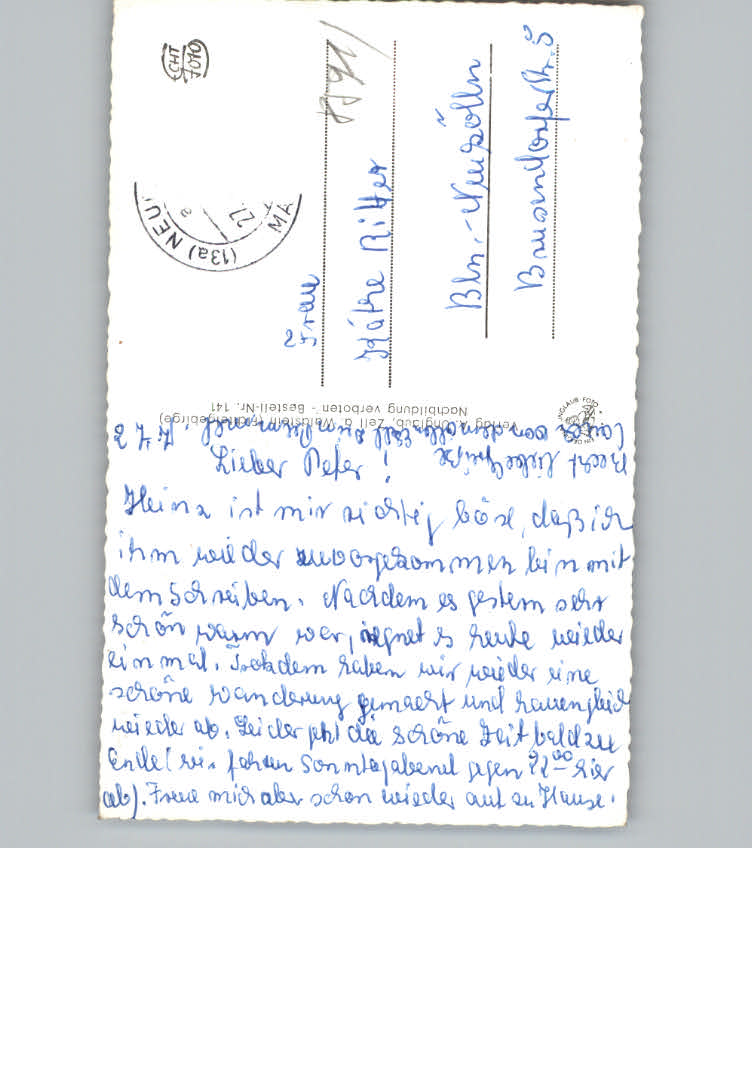 Lieber Peter!
Heinz ist mir richtig böse, daß ich
ihm wieder zuvorgekommen bin mit
dem Schreiben. Nachdem es gestern sehr
schön warm war, regnet es heute wieder
einmal. Trotzdem haben wir wieder eine
schöne Wanderung gemacht und hauen gleich
wieder ab. Leider geht die schöne Zeit bald zu
Ende (wir fahren Sonntagabend gegen 22⁰⁰ hier
ab). Freue mich aber schon wieder auf zu Hause.
Recht liebe Grüße
von dem
Verlag A. Unglaub, Zell a. Waldstein (Fichtelgebirge)
Nachbildung verboten - Bestell-Nr. 141
Frau
Käthe Ritter
Bln.-Neukölln
Str. 5
(13a) NEU
MA
27
a
ECHT
FOTO
UNGLAUB FOTO